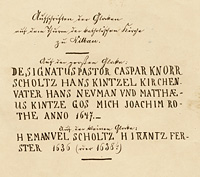 Aufschriften der Glocken
auf dem Thurm der katholischen Kirche
zu Kilban.
Auf der grossen Glocke:
DESIGNATUS PASTOR CASPAR KNORR
SCHOLTZ HANS KINTZEL KIRCHEN
VATER HANS NEUMAN UND MATTHAE-
US KINTZE GOS MICH JOACHIM RO-
THE ANNO 1647.
Auf der kleinen Glocke:
H EMANUEL SCHOLTZ H IRANTZ FER-
STER 1636 (oder 1686?)